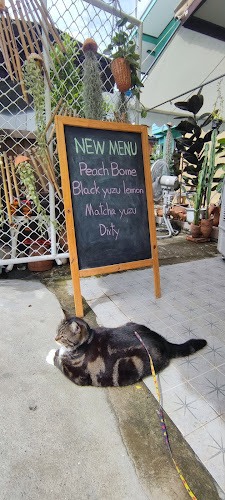 NEW MENU
Peach Bome
Black yuzu lemon
Matcha yuzu
Dirty